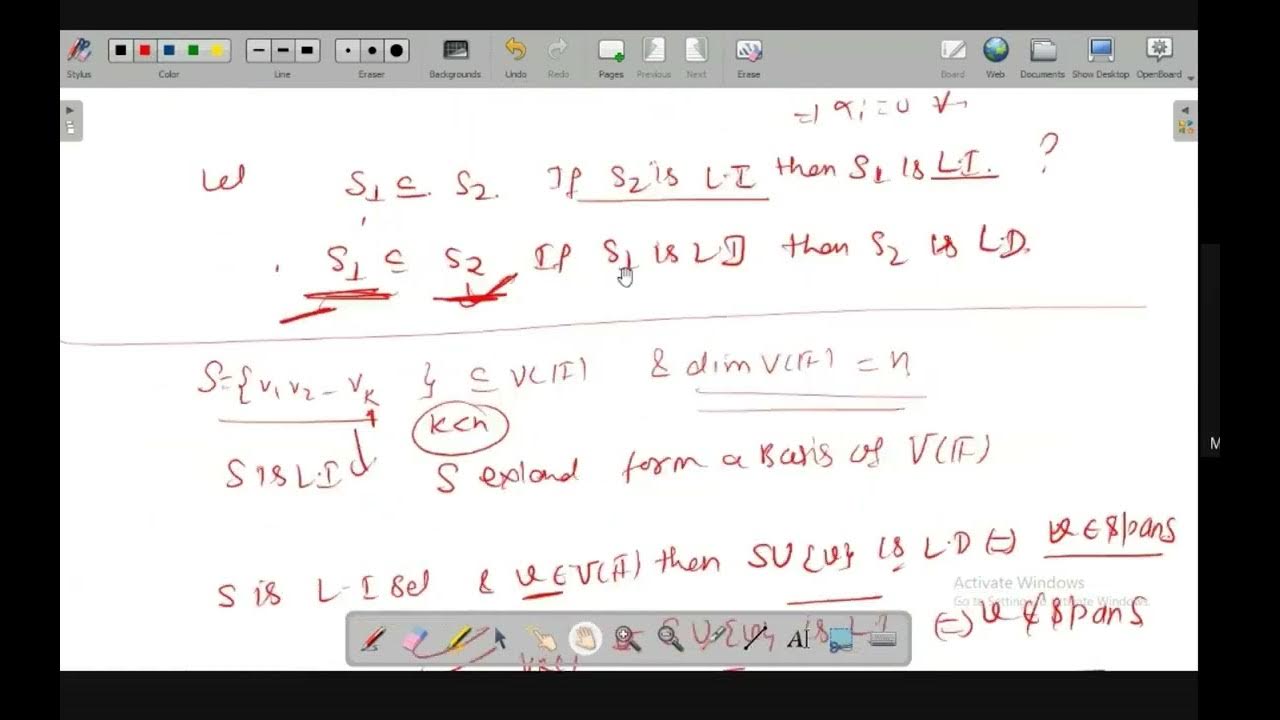 Stylus Color Line Eraser Backgrounds Undo Redo Pages Previous Next Erase Board Web Documents Show Desktop OpenBoard
=) αi = 0 ∀i
Let S1 ⊆ S2. If S2 is L.I then S1 is L.I. ?
S1 ⊆ S2 If S1 is LD then S2 is L.D.
S={v1 v2 - vk } ⊆ V(F) & dim V(F) = n
k<n
S is L.I S extend form a Basis of V(F)
S is L-I Set & v∈V(F) then SU{v} is L.D (=) v∈span S
Activate Windows
Go to Settings to activate Windows.
SU{v} is L.I (=) v∉span S
M